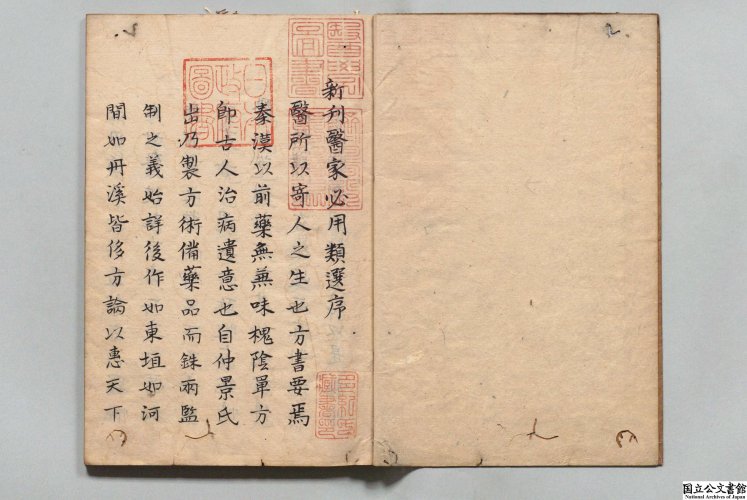 新刋醫家必用類選序
醫所以寄人之生也方書要焉
秦漢以前藥無兼味槐陰單方
即古人治病遺意也自仲景氏
出乃製方術備藥品而銖兩監
制之義始詳後作如東垣如河
間如丹溪皆侈方論以惠天下
日本
政府
圖書
国立公文書館
National Archives of Japan